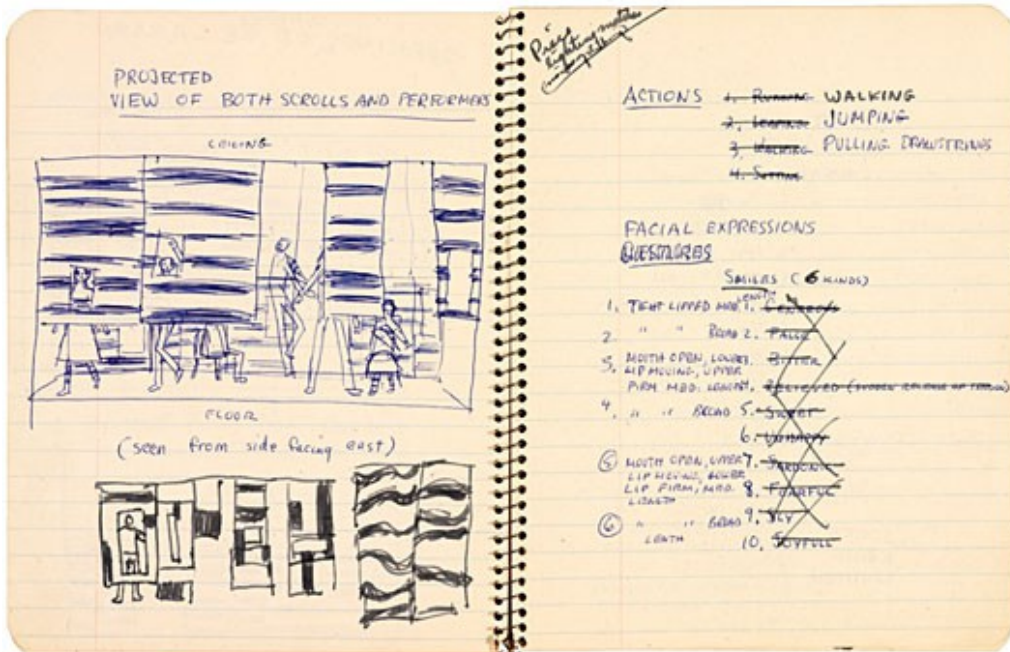 PROJECTED
VIEW OF BOTH SCROLLS AND PERFORMERS
CEILING
FLOOR
(seen from side facing east)
Lighting
ACTIONS 1. RUNNING WALKING
2. LEAPING JUMPING
3. WALKING PULLING DRAWSTRINGS
4. SITTING
FACIAL EXPRESSIONS
GESTURES
SMILES (6 KINDS)
1. TIGHT LIPPED MED. LENGTH 1.
2 " " BROAD 2. FALSE
3. MOUTH OPEN, LOWER 3. BITTER
LIP MOVING, UPPER
FIRM MED. LENGTH 4. RELIEVED (SUDDEN RELEASE OF TENSION)
4. " " BROAD 5. SWEET
6. UNHAPPY
5 MOUTH OPEN, UPPER 7. SARDONIC
LIP MOVING, LOWER
LIP FIRM, MED. 8. FEARFUL
LENGTH
6 " " BROAD 9. SLY
LENTH 10. JOYFULL